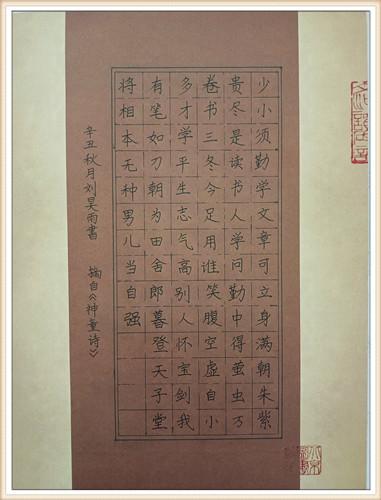 少小须勤学文章可立身满朝朱紫
贵尽是读书人学问勤中得萤虫万
卷书三冬今足用谁笑腹空虚自小
多才学平生志气高别人怀宝剑我
有笔如刀朝为田舍郎暮登天子堂
将相本无种男儿当自强
辛丑秋月刘昊雨書 摘自《神童诗》